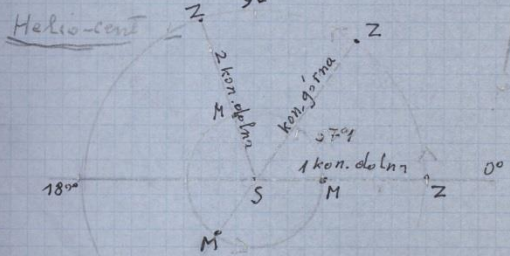 Helio-cent
Z
Z
2 kon. dolna
kon. górna
M
57°
1 kon. dolna
0°
180°
S
M
Z
M